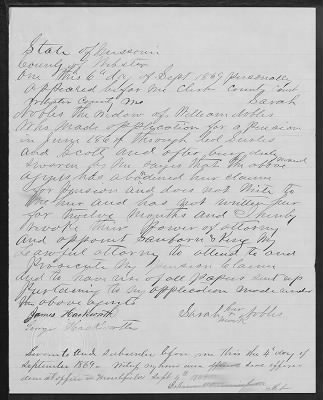 State of Missouri
County of Webster
On this 6th day of Sept 1869 personally
appeared before me Clerk County Court
Webster County Mo Sarah
Nobles the widow of William Nobles
who made application for a pension
in June 1867 through
and Scott and after being duly
sworn by me says that the above
agents has abandoned her claim
for pension and does not write to
her and has not written for
for twelve months and I hereby
revoke their power of attorney
and appoint my
lawful attorney to attend to and
Prosecute my pension claim
and to have of all papers
pertaining to my application made under
the above agents
James Hackworth Sarah her Nobles
George Hackworth mark
Sworn to and subscribed before me this the 6th day of
September 1869. Witness my hand and
done at office in Marshfield Sept 6th